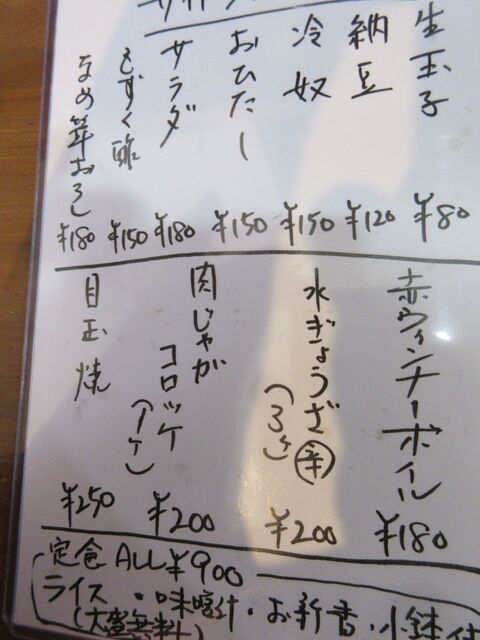 サイド
生玉子 ¥80
納豆 ¥120
冷奴 ¥150
おひたし ¥150
サラダ ¥180
もずく酢 ¥150
なめ茸おろし ¥180
赤ウィンナーボイル ¥180
水ぎょうざ 辛
(3ケ) ¥200
肉じゃが
コロッケ
(1ケ) ¥200
目玉焼 ¥250
定食 ALL ¥900
ライス・味噌汁・お新香・小鉢付
(大盛無料)